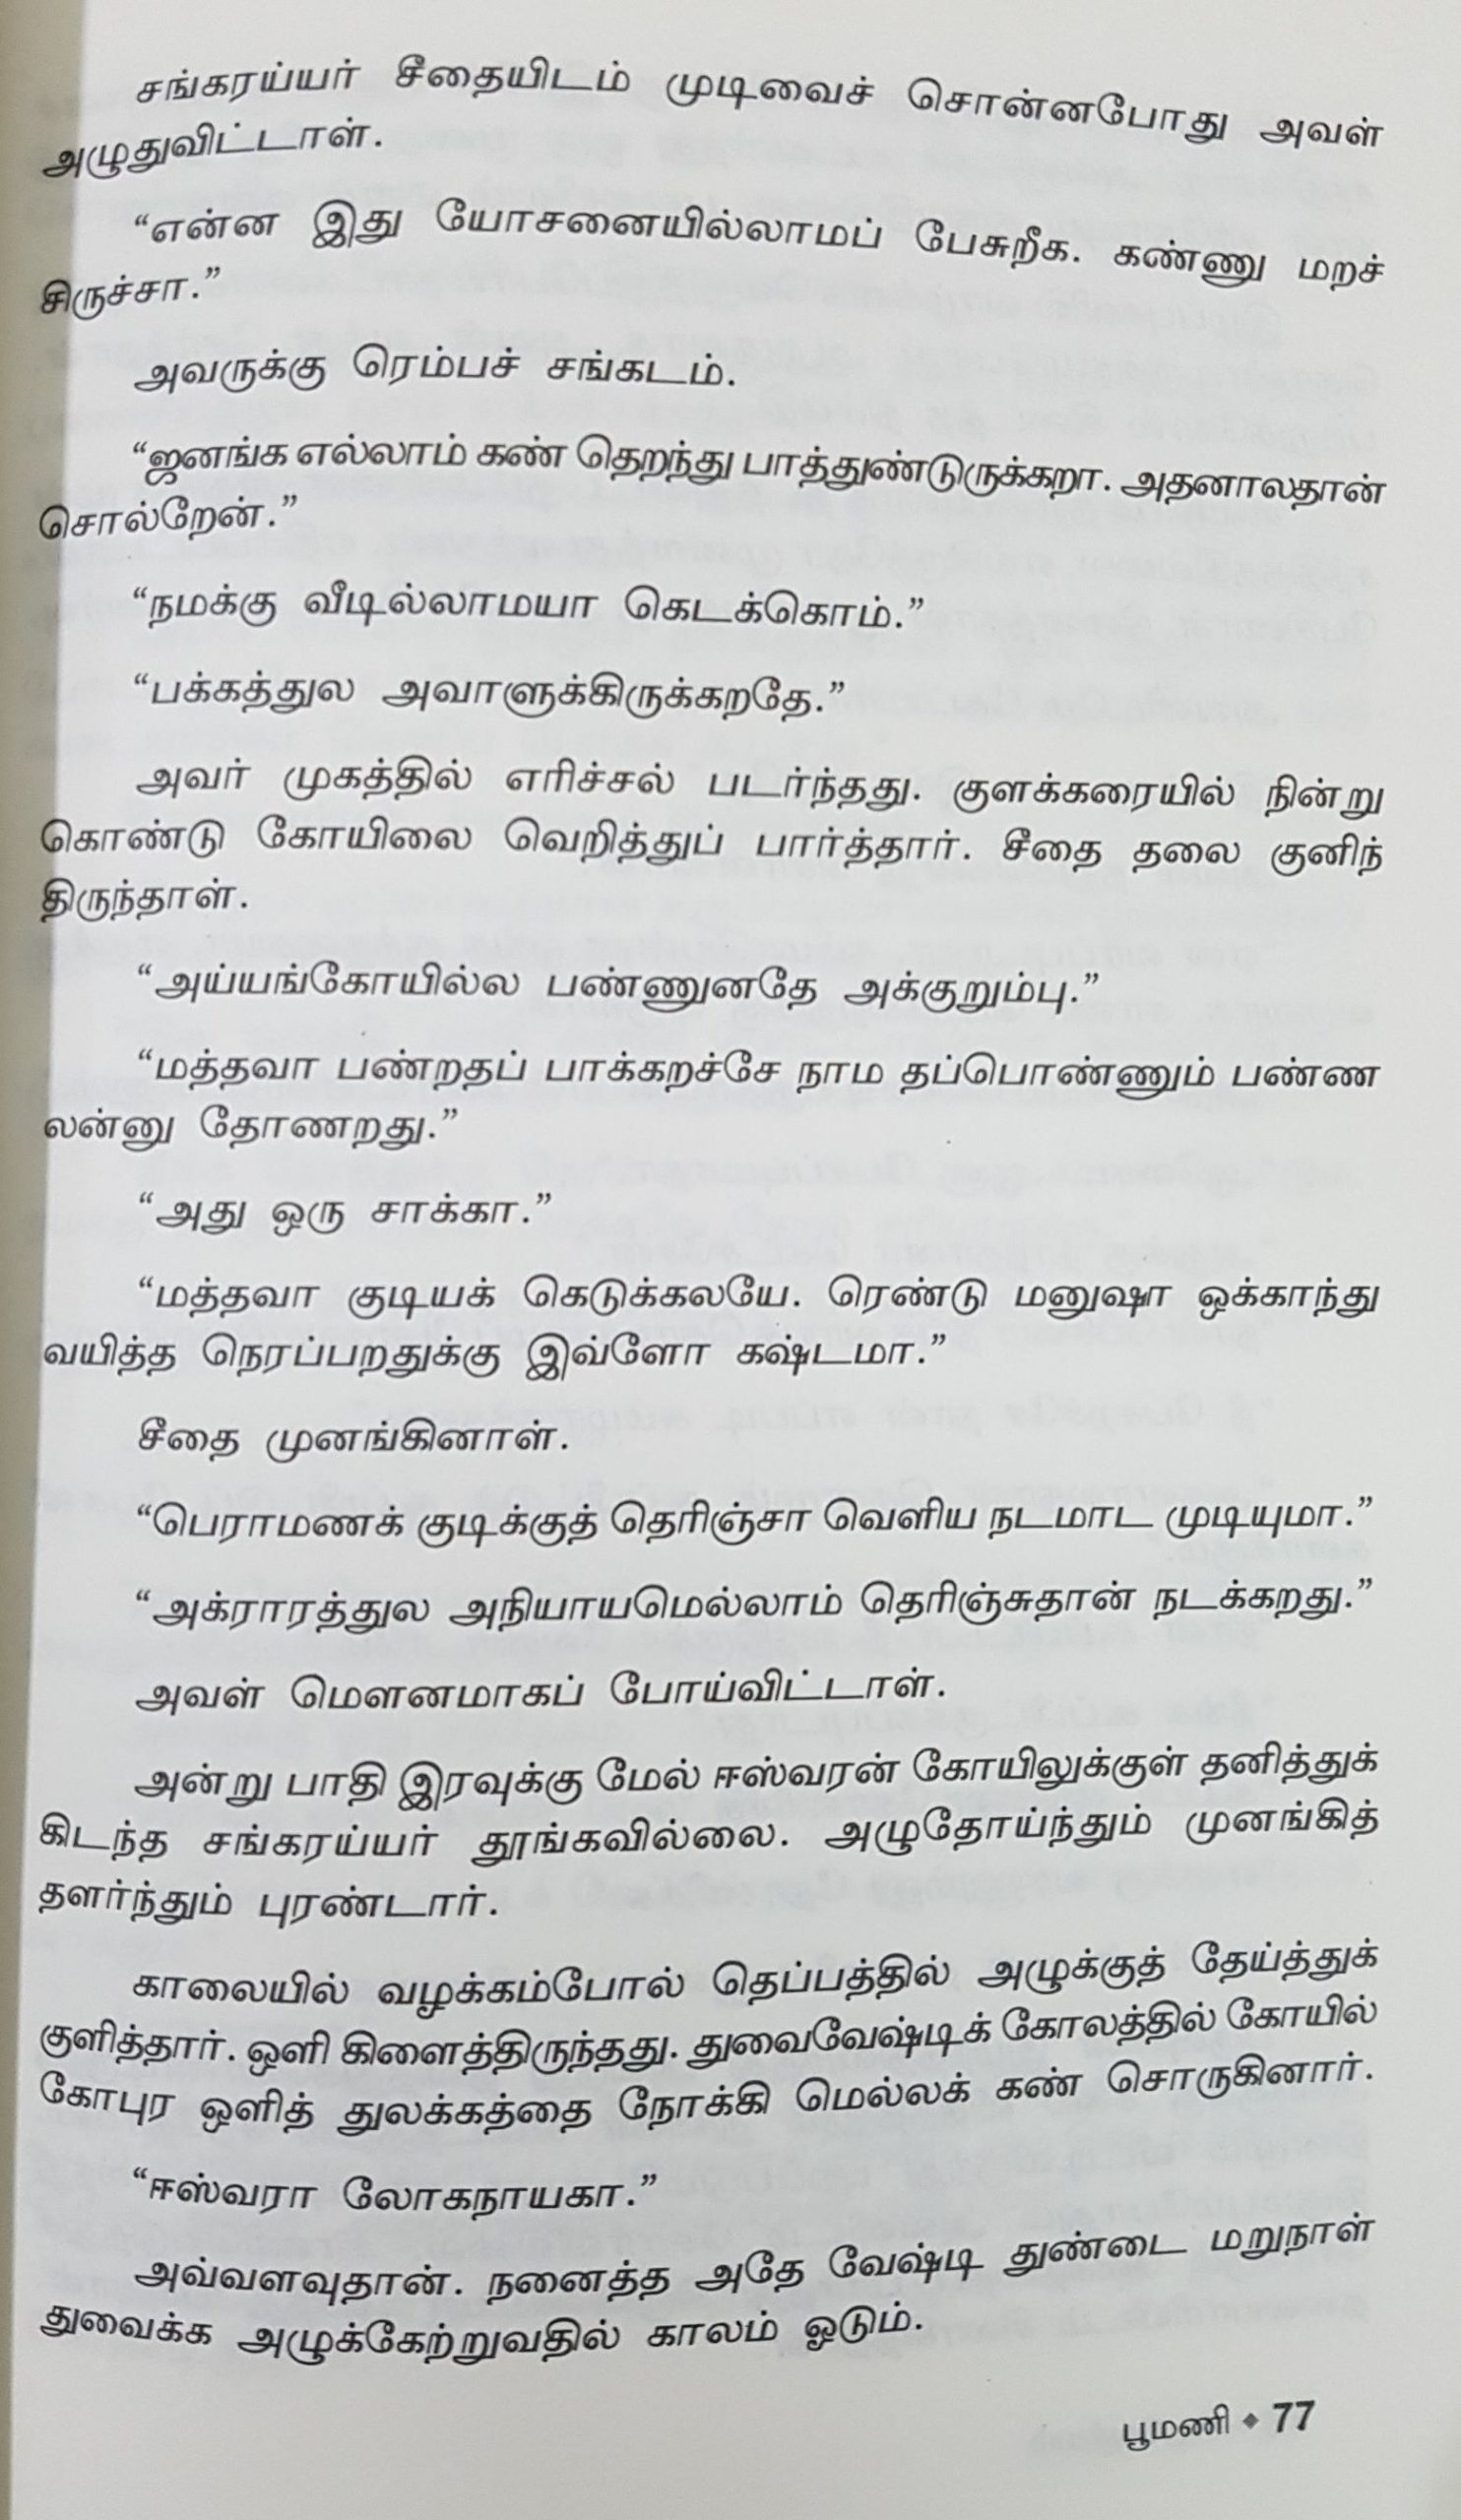 சங்கரய்யர் சீதையிடம் முடிவைச் சொன்னபோது அவள்
அழுதுவிட்டாள்.
“என்ன இது யோசனையில்லாமப் பேசுறீக. கண்ணு மறச்
சிருச்சா.”
அவருக்கு ரெம்பச் சங்கடம்.
“ஜனங்க எல்லாம் கண் தெறந்து பாத்துண்டுருக்கறா. அதனாலதான்
சொல்றேன்.”
“நமக்கு வீடில்லாமயா கெடக்கொம்.”
“பக்கத்துல அவாளுக்கிருக்கறதே.”
அவர் முகத்தில் எரிச்சல் படர்ந்தது. குளக்கரையில் நின்று
கொண்டு கோயிலை வெறித்துப் பார்த்தார். சீதை தலை குனிந்
திருந்தாள்.
“அய்யங்கோயில்ல பண்ணுனதே அக்குறும்பு.”
“மத்தவா பண்றதப் பாக்கறச்சே நாம தப்பொண்ணும் பண்ண
லன்னு தோணறது.”
“அது ஒரு சாக்கா.”
“மத்தவா குடியக் கெடுக்கலயே. ரெண்டு மனுஷா ஒக்காந்து
வயித்த நெரப்பறதுக்கு இவ்ளோ கஷ்டமா.”
சீதை முனங்கினாள்.
“பெராமணக் குடிக்குத் தெரிஞ்சா வெளிய நடமாட முடியுமா.”
“அக்ராரத்துல அநியாயமெல்லாம் தெரிஞ்சுதான் நடக்கறது.”
அவள் மௌனமாகப் போய்விட்டாள்.
அன்று பாதி இரவுக்கு மேல் ஈஸ்வரன் கோயிலுக்குள் தனித்துக்
கிடந்த சங்கரய்யர் தூங்கவில்லை. அழுதோய்ந்தும் முனங்கித்
தளர்ந்தும் புரண்டார்.
காலையில் வழக்கம்போல் தெப்பத்தில் அழுக்குத் தேய்த்துக்
குளித்தார். ஒளி கிளைத்திருந்தது. துவைவேஷ்டிக் கோலத்தில் கோயில்
கோபுர ஒளித் துலக்கத்தை நோக்கி மெல்லக் கண் சொருகினார்.
“ஈஸ்வரா லோகநாயகா.”
அவ்வளவுதான். நனைத்த அதே வேஷ்டி துண்டை மறுநாள்
துவைக்க அழுக்கேற்றுவதில் காலம் ஓடும்.
பூமணி ◆ 77